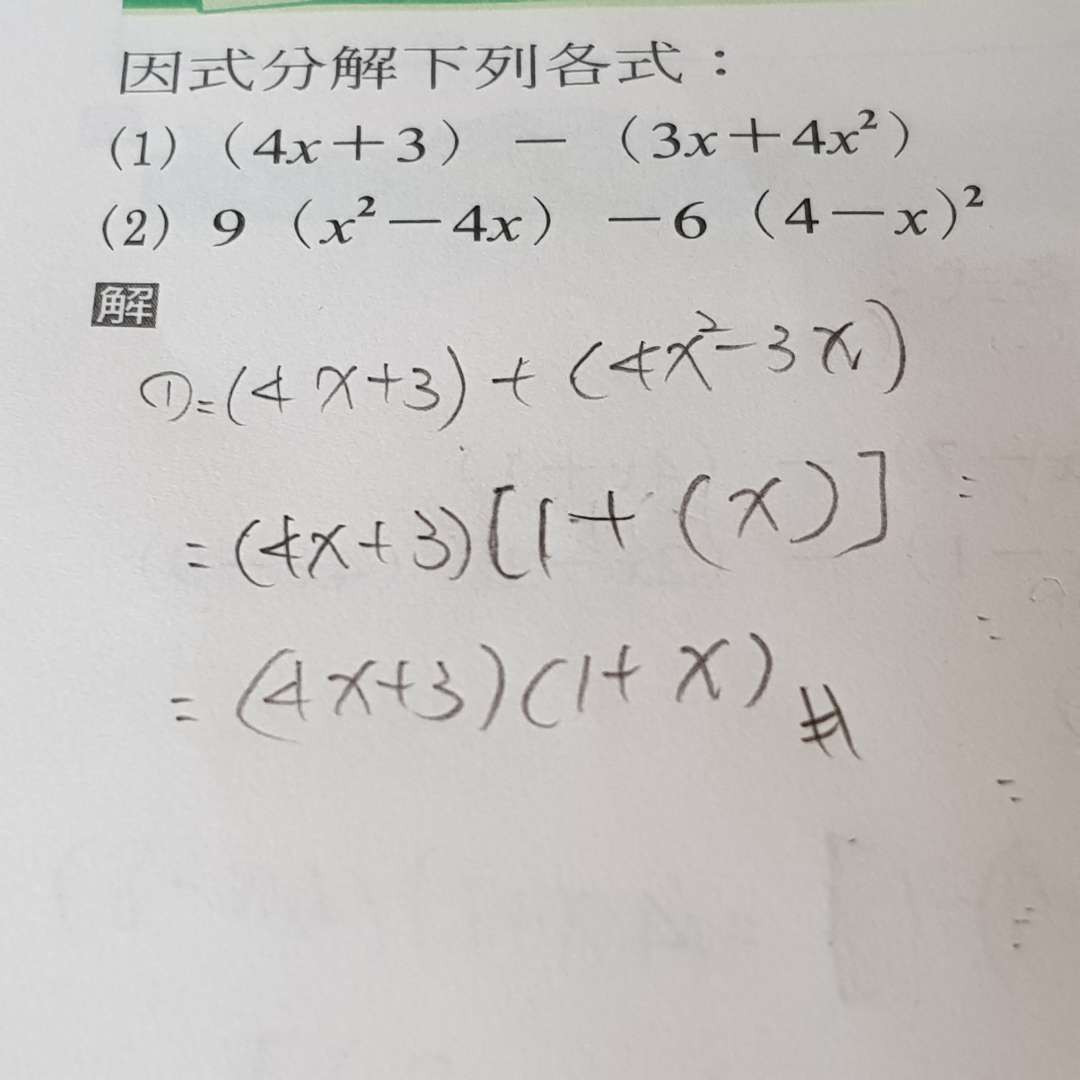 因式分解下列各式：
(1)（4x＋3）－（3x＋4x²）
(2) 9（x²－4x）－6（4－x)²
解
①=(4x+3)+(4x²-3x)
=(4x+3)[1+(x)]
=(4x+3)(1+x)#